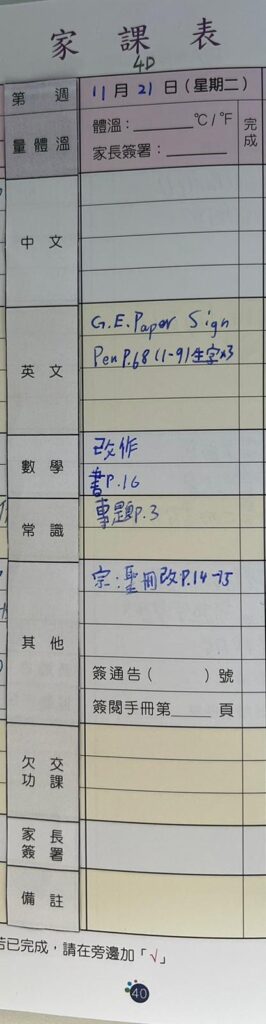 家課表
4D
第 週
11月21日(星期二)
量體溫
體溫:______℃/℉
家長簽署:______
完成
中文
英文
G.E. Paper Sign
Pen P.68 (1-9)生字x3
數學
改作
書P.16
常識
專題P.3
其他
宗:聖冊改P.14-15
簽通告( )號
簽閱手冊第____頁
欠交
功課
家長
簽署
備註
若已完成,請在旁邊加「√」
40